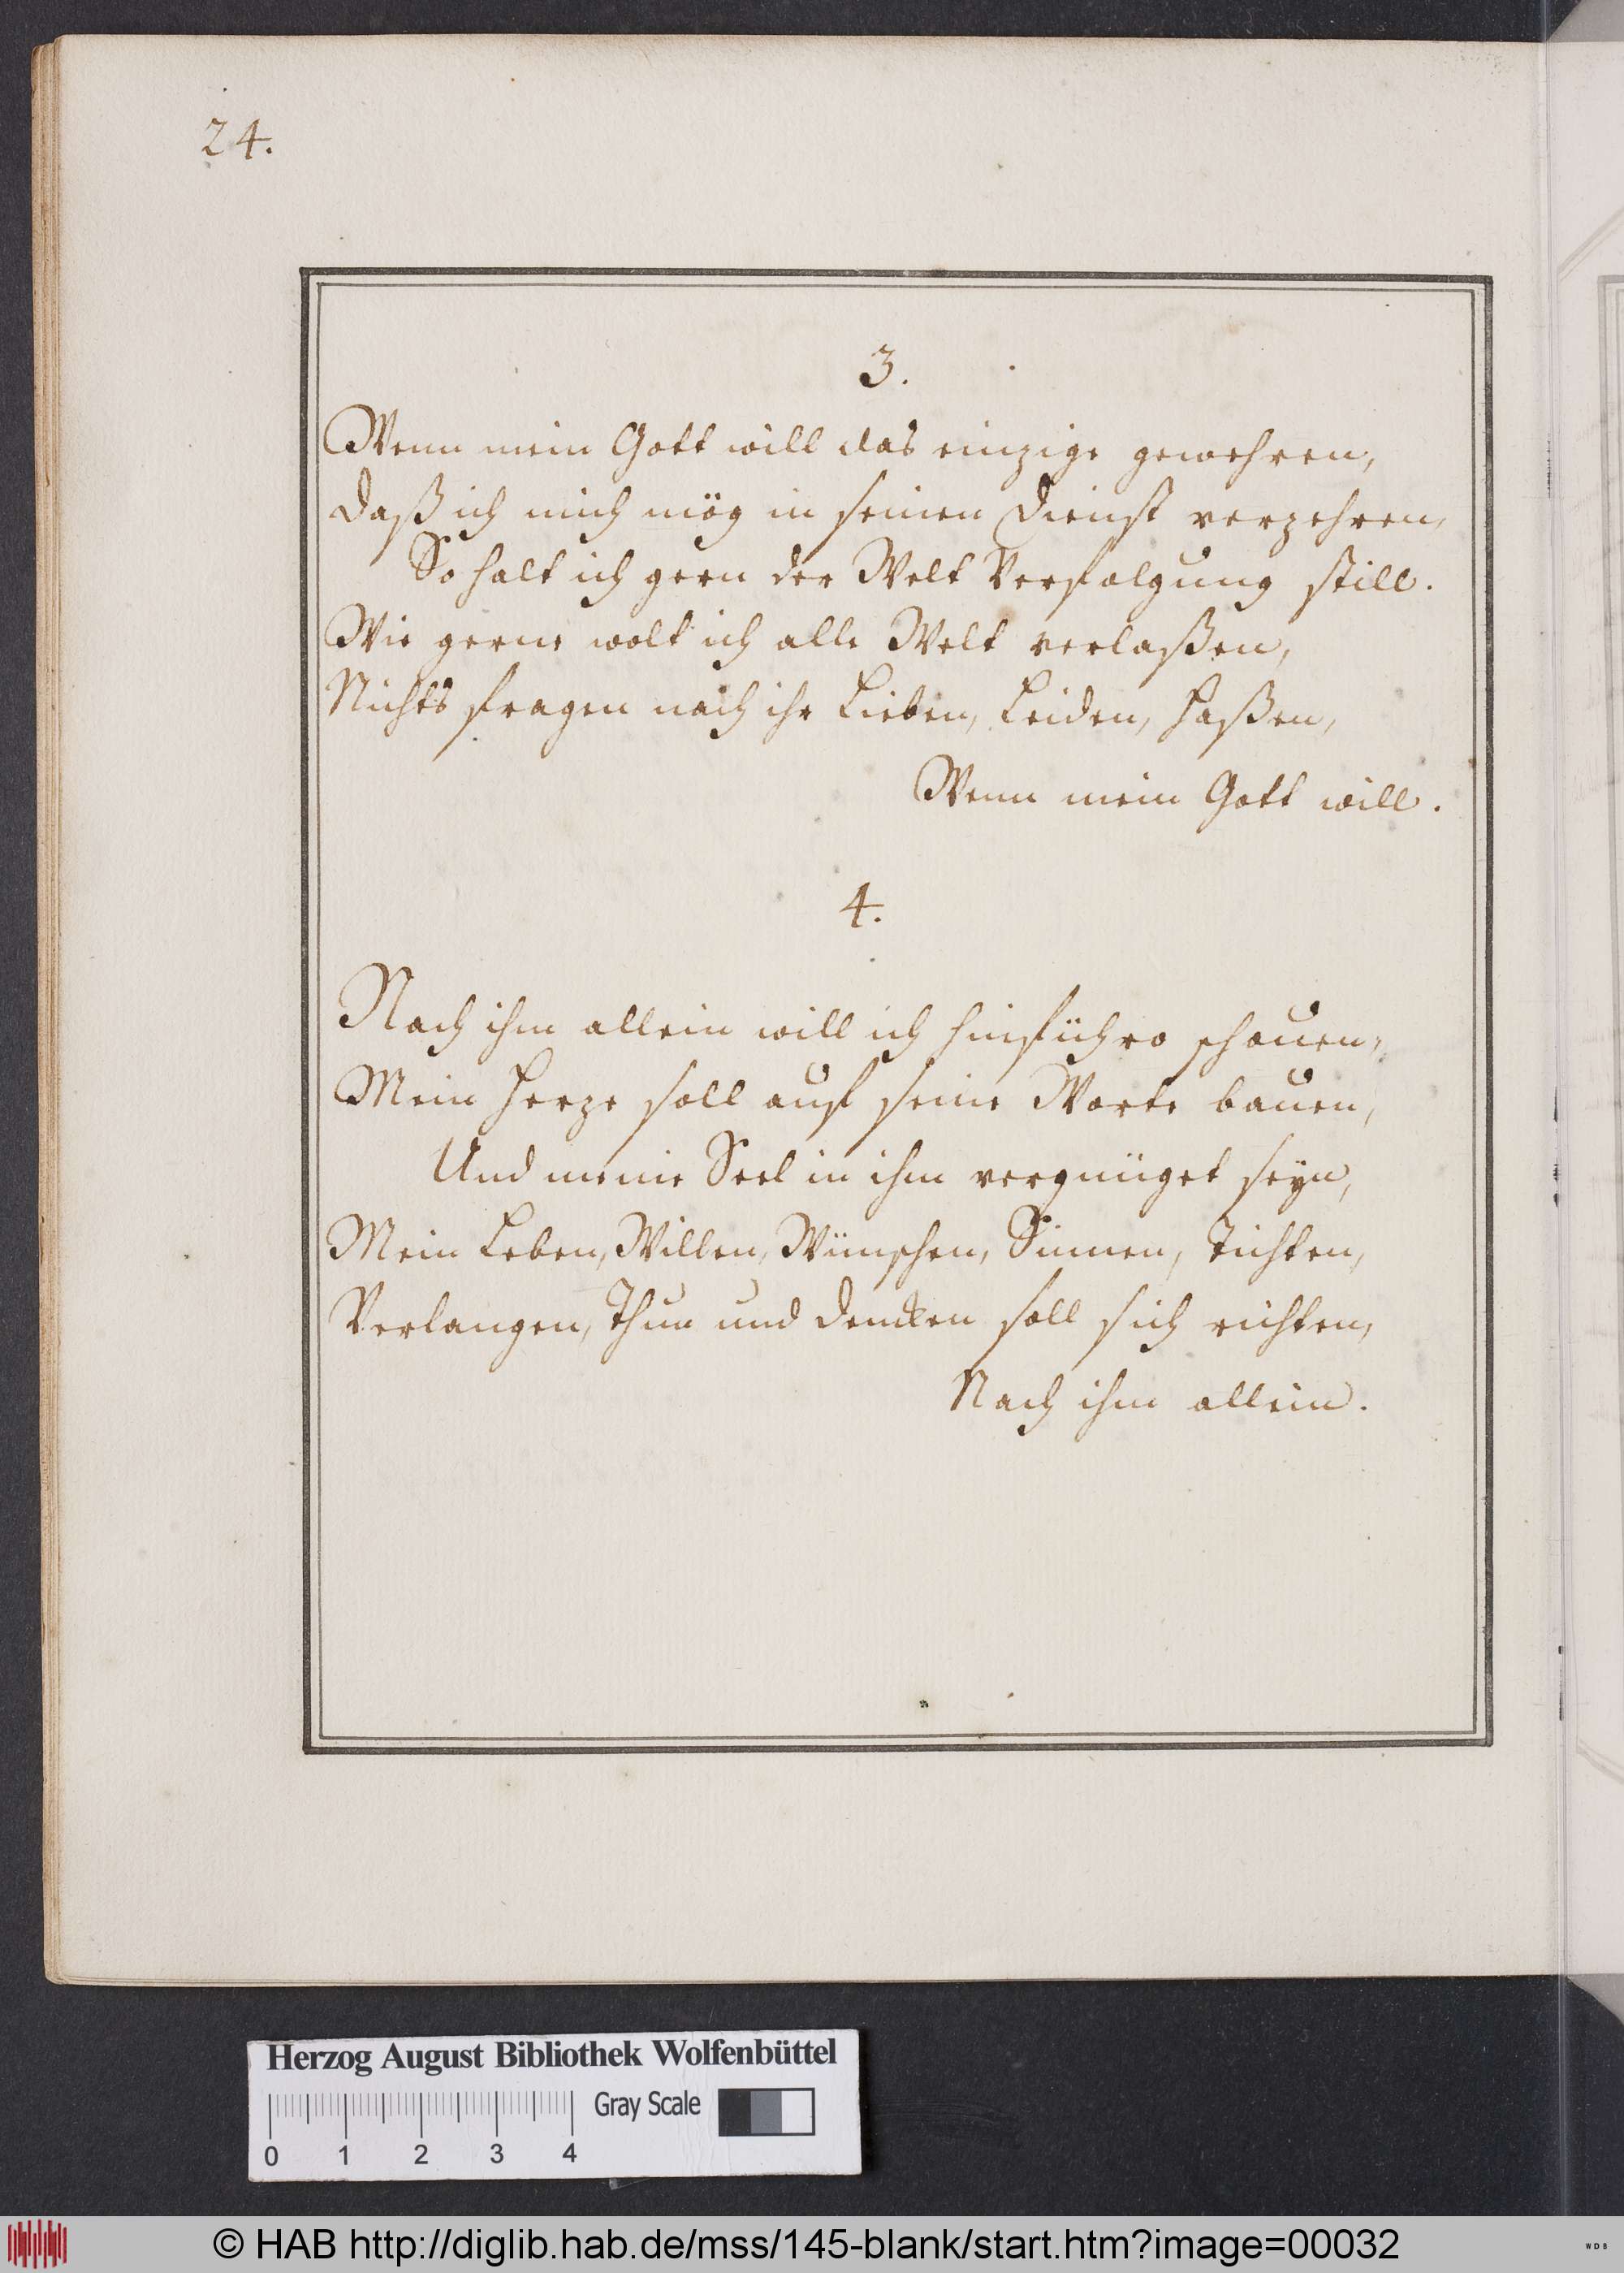 24.
3.
Wenn mein Gott will das einzige gewehren,
Daß ich mich mög in seinen Dienst verzehren,
So halt ich gern der Welt Verfolgung still.
Wie gerne wolt ich alle Welt verlaßen,
Nichts fragen nach ihr Lieben, Leiden, Haßen,
Wenn mein Gott will.
4.
Nach ihm allein will ich hinführo schauen,
Mein Herze soll auf seine Worte bauen,
Und meine Seel in ihm vergnüget seyn,
Mein Leben, Willen, Wünschen, Sinnen, Tichten,
Verlangen, Thun und Dencken soll sich richten,
Nach ihm allein.
Herzog August Bibliothek Wolfenbüttel
Gray Scale
0 1 2 3 4
© HAB http://diglib.hab.de/mss/145-blank/start.htm?image=00032
WDB